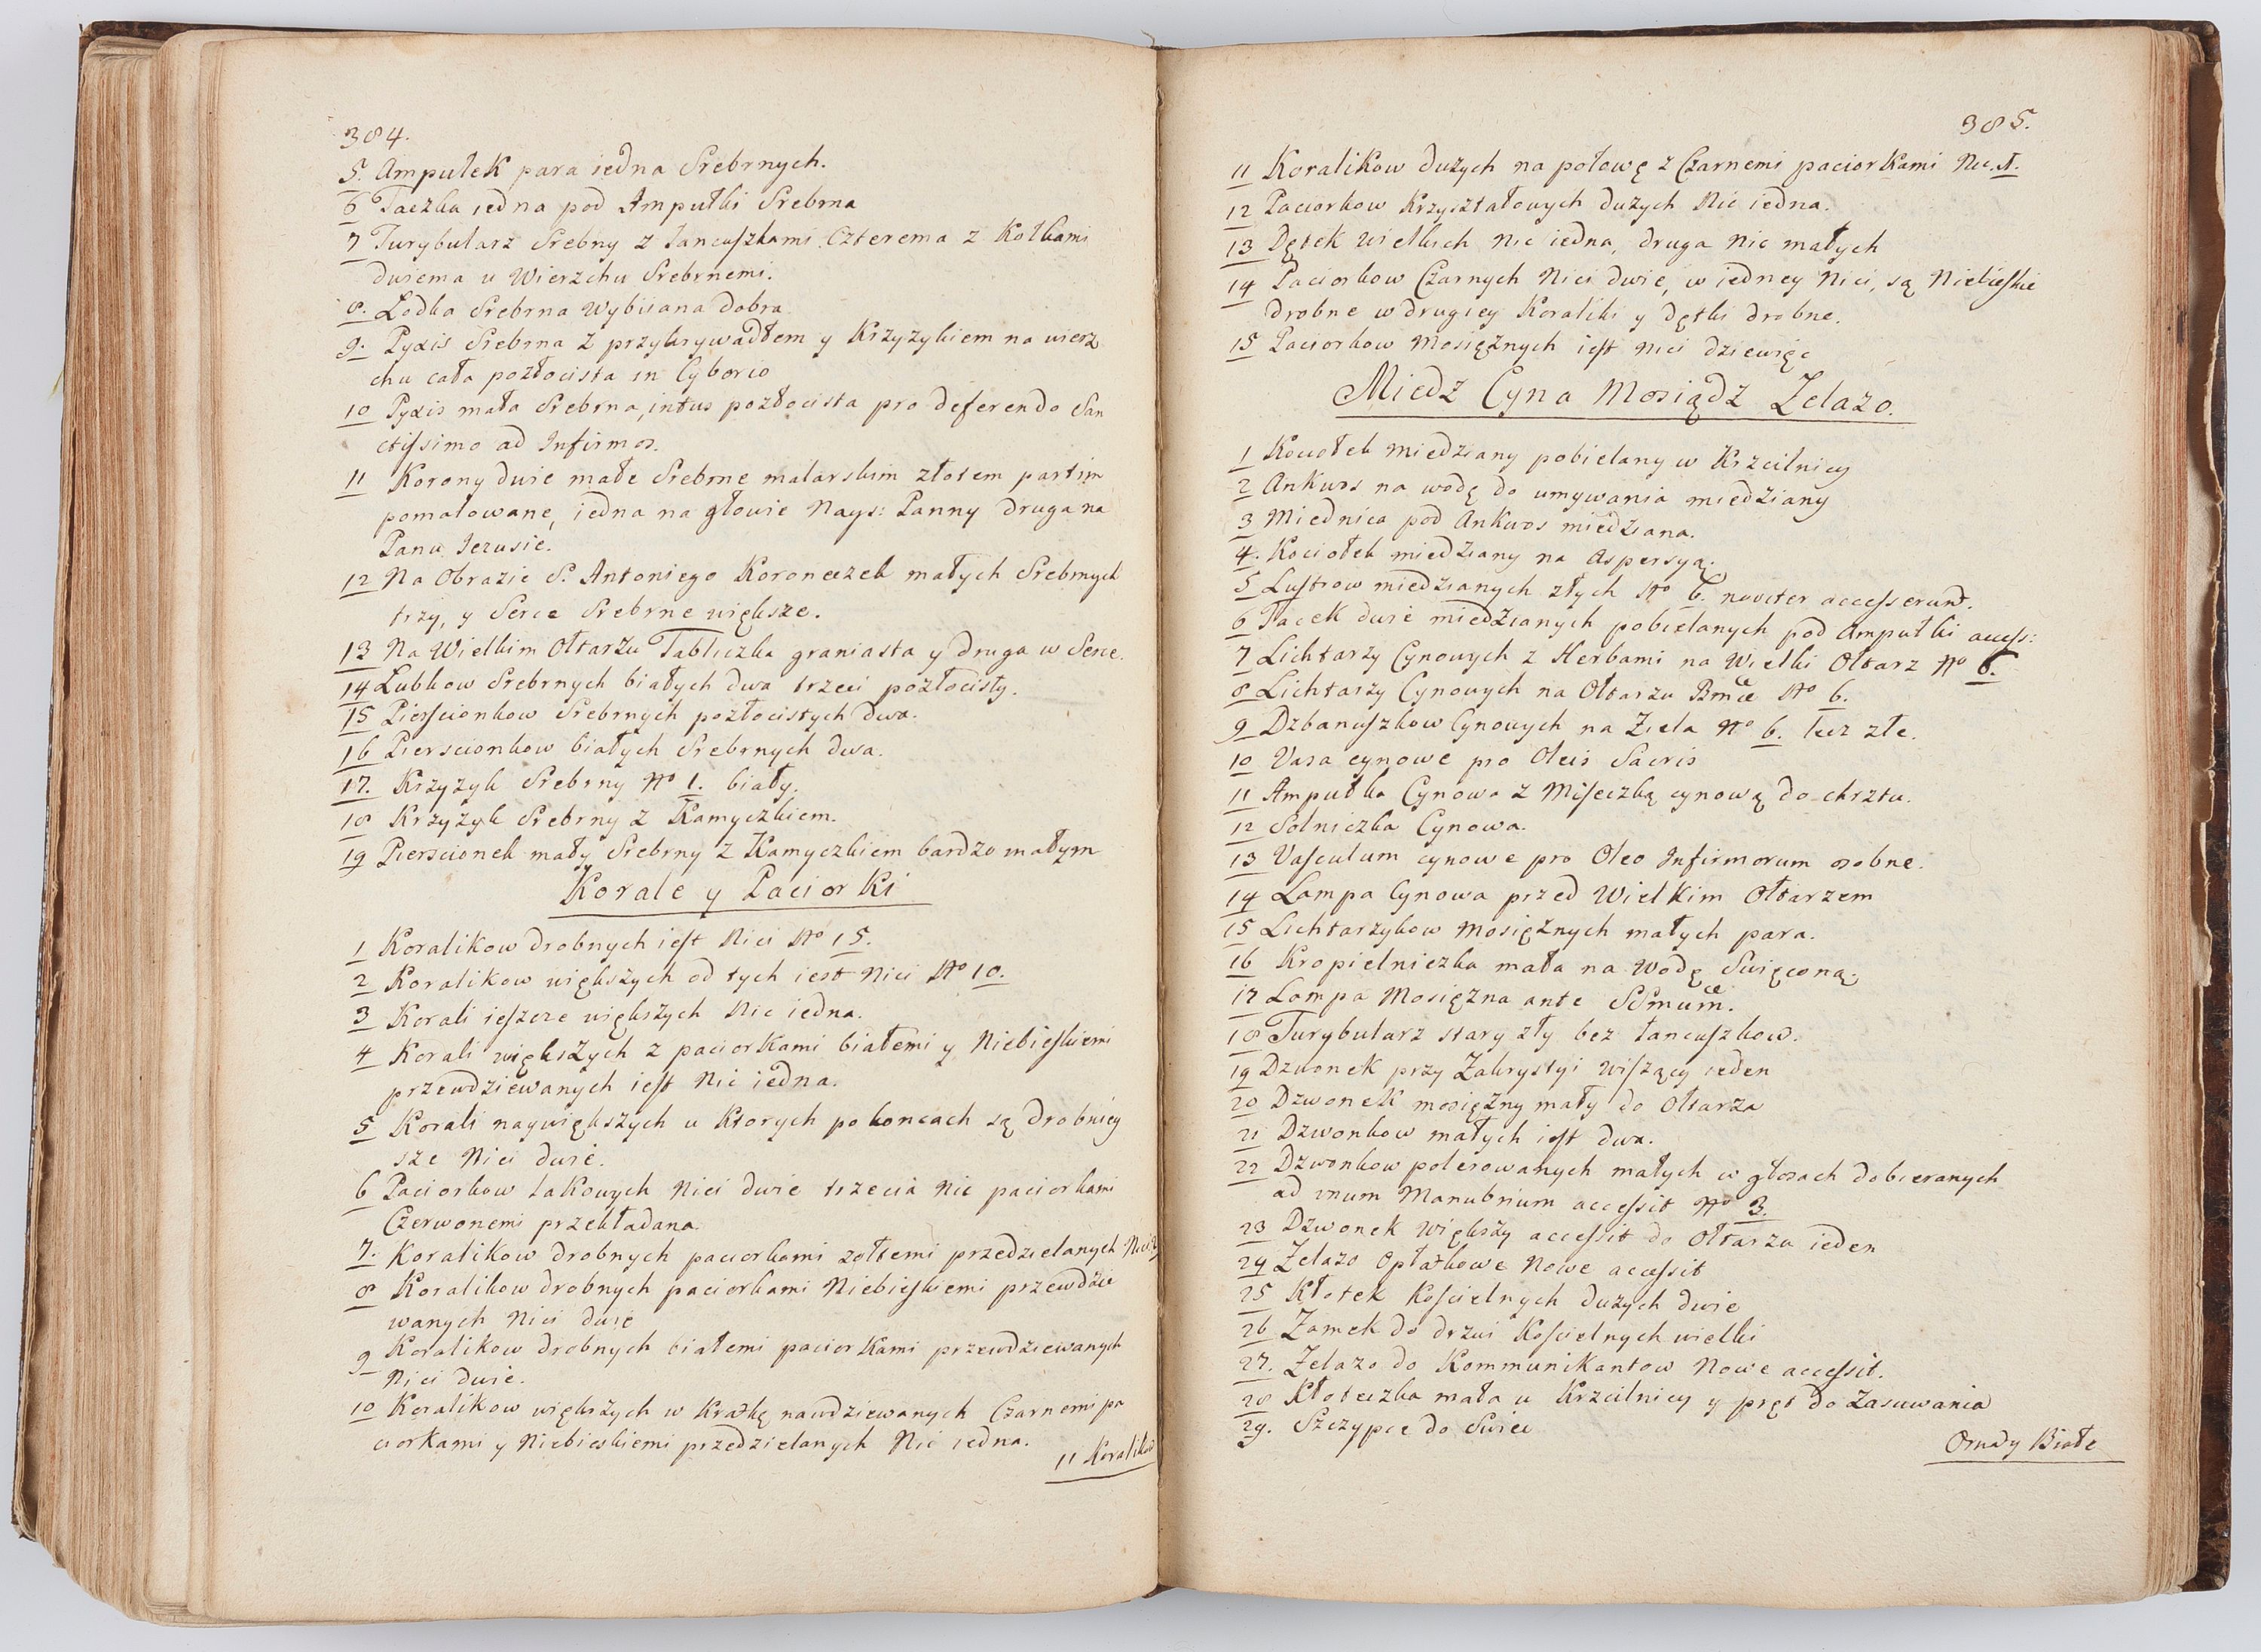 384.
5. Ampułek para iedna Srebrnych.
6 Taczka iedna pod Ampułki Srebrna
7 Turybularz Srebny z Łancuszkami Czterema z Kołkami
dwiema u Wierzchu Srebrnemi.
8. Łodka Srebrna Wybiiana dobra
9. Pyxis Srebrna z przykrywadłem y Krzyżykiem na wierz
chu cała pozłocista in Cyborio
10 Pyxis mała Srebrna, intus pozłocista pro deferendo San
ctissimo ad Infirmos.
11 Korony dwie małe Srebrne malarskim złotem partim
pomalowane, iedna na głowie Nays: Panny druga na
Panu Jezusie.
12 Na Obrazie S. Antoniego Koroneczek małych Srebrnych
trzy, y Serce Srebrne większe.
13 Na Wielkim Ołtarzu Tabliczka graniasta y druga w Serce.
14 Lubkow Srebrnych białych dwa trzeci pozłocisty.
15 Pierscionkow Srebrnych pozłocistych dwa.
16 Pierscionkow białych Srebrnych dwa.
17. Krzyżyk Srebrny No 1. biały.
18 Krzyżyk Srebrny z Kamyczkiem.
19 Pierscionek mały Srebrny z Kamyczkiem bardzo małym
Korale y Paciorki
1 Koralikow drobnych iest Nici No 15.
2 Koralikow większych od tych iest Nici No 10.
3 Korali ieszcze większych Nic iedna.
4 Korali większych z paciorkami białemi y Niebieskiemi
przewdziewanych iest Nic iedna.
5 Korali naywiększych u Ktorych po koncach są drobniey
sze Nici dwie.
6 Paciorkow Lakowych Nici dwie trzecia Nic paciorkami
Czerwonemi przekładana.
7. Koralikow drobnych paciorkami zołtemi przedzielanych Nici
8 Koralikow drobnych paciorkami Niebieskiemi przewdzie
wanych Nici dwie
9 Koralikow drobnych białemi paciorkami przewdziewanych
Nici dwie.
10 Koralikow większych w Kratkę nawdziewanych Czarnemi pa
ciorkami y Niebieskiemi przedzielanych Nic iedna.
11 Koralikow
385.
11 Koralikow dużych na połowę z Czarnemi paciorkami Nic. 1.
12 Paciorkow Krzyształowych dużych Nic iedna.
13 Dętek wielkich Nic iedna, druga Nic małych
14 Paciorkow Czarnych Nici dwie, w iedney Nici, są Niebieskie
drobne w drugiey Koraliki y dętki drobne.
15 Paciorkow Mosiężnych iest Nici dziewięc
Miedz Cyna Mosiądz Zelazo.
1 Kociołek miedziany pobielany w Krzcilnicy
2 Ankwas na wodę do umywania miedziany
3 Miednica pod Ankwas miedziana.
4. Kociołek miedziany na Aspersyą.
5 Lustrow miedzianych złych No 6. noviter accesserunt.
6 Tacek dwie miedzianych pobielanych pod Ampułki access:
7 Lichtarzy Cynowych z Herbami na Wielki Ołtarz No 6.
8 Lichtarzy Cynowych na Ołtarzu Bmæ No 6.
9 Dzbanuszkow Cynowych na Ziela No 6. lecz złe.
10 Vasa cynowe pro Oleis Sacris
11 Ampułka Cynowa z Miseczką cynową do chrztu.
12 Solniczka Cynowa.
13 Vasculum cynowe pro Oleo Infirmorum osobne.
14 Lampa Cynowa przed Wielkim Ołtarzem
15 Lichtarzykow Mosiężnych małych para.
16 Kropielniczka mała na Wodę Swięconą.
17 Lampa Mosiężna ante SSmum.
18 Turybularz stary zły bez łancuszkow.
19 Dzwonek przy Zakrystyi wiszący ieden
20 Dzwonek mosiężny mały do Ołtarza
21 Dzwonkow małych iest dwa.
22 Dzwonkow polerowanych małych w głosach dobieranych
ad unum Manubrium accessit No 3.
23 Dzwonek większy accessit do Ołtarza ieden
24 Zelazo Opłatkowe Nowe accessit
25 Kłotek Koscielnych dużych dwie
26 Zamek do drzwi Koscielnych wielki
27. Zelazo do Kommunikantow Nowe accessit.
28 Kłoteczka mała u Krzcilnicy y pręt do Zasuwania
29. Szczypce do Swiec
Ornaty Białe